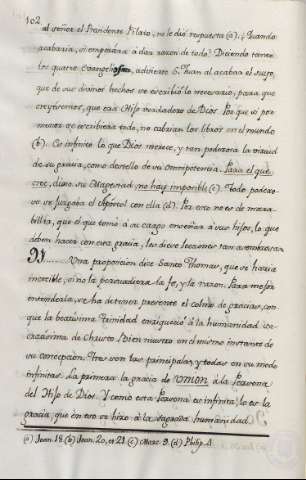 102
al señor el Presidente Pilato, no le dió respuesta (a). ¿Quando
acabaria, si empezára á dar razon de todo? Diciendo tanto
los quatro Evangelios, advierte S. Juan al acabar el suyo,
que de sus divinos hechos se escribió lo necesario, para que
creyéramos, que era Hijo verdadero de Dios. Porque si por
menor se escribiera todo, no cabrian los libros en el mundo
(b). Es infinito lo que Dios merece, y tan poderosa la virtud
de su gracia, como destello de su Omnipotencia. Para el que
cree, dixo su Magestad, no hay imposible (c). Todo poderoso
se juzgaba el Apostol con ella (d). Por esto no es de mara-
billar, que el que tomó á su cargo enseñar á sus hijos, lo que
deben hacer con esta gracia, les diese lecciones tan
Una proposicion dice Santo Thomas, que se haria
increible, si no la persuadiera la fe, y la razon. Para mejor
entenderla, se ha de tener presente el colmo de gracias, con
que la beatisima Trinidad enriqueció á la humanidad sa-
cratísima de Christo Bien nuestro en el mismo instante de
su concepcion. Tres son las principales, y todas en su modo
infinitas. La primera la gracia de union á la Persona
del Hijo de Dios. Y como esta Persona es infinita, lo es la
gracia, que en esto se hizo á la sagrada humanidad.
(a) Joan. 18. (b) Joan. 20. et 21. (c) Marc. 9. (d) Philip. 4.